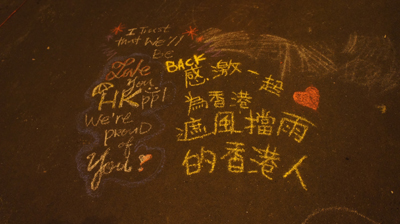 I Trust
that We'll
be
BACK
Love
You
HKppl
We're
proud
of
You!
感激一起
為香港
遮風擋雨
的香港人